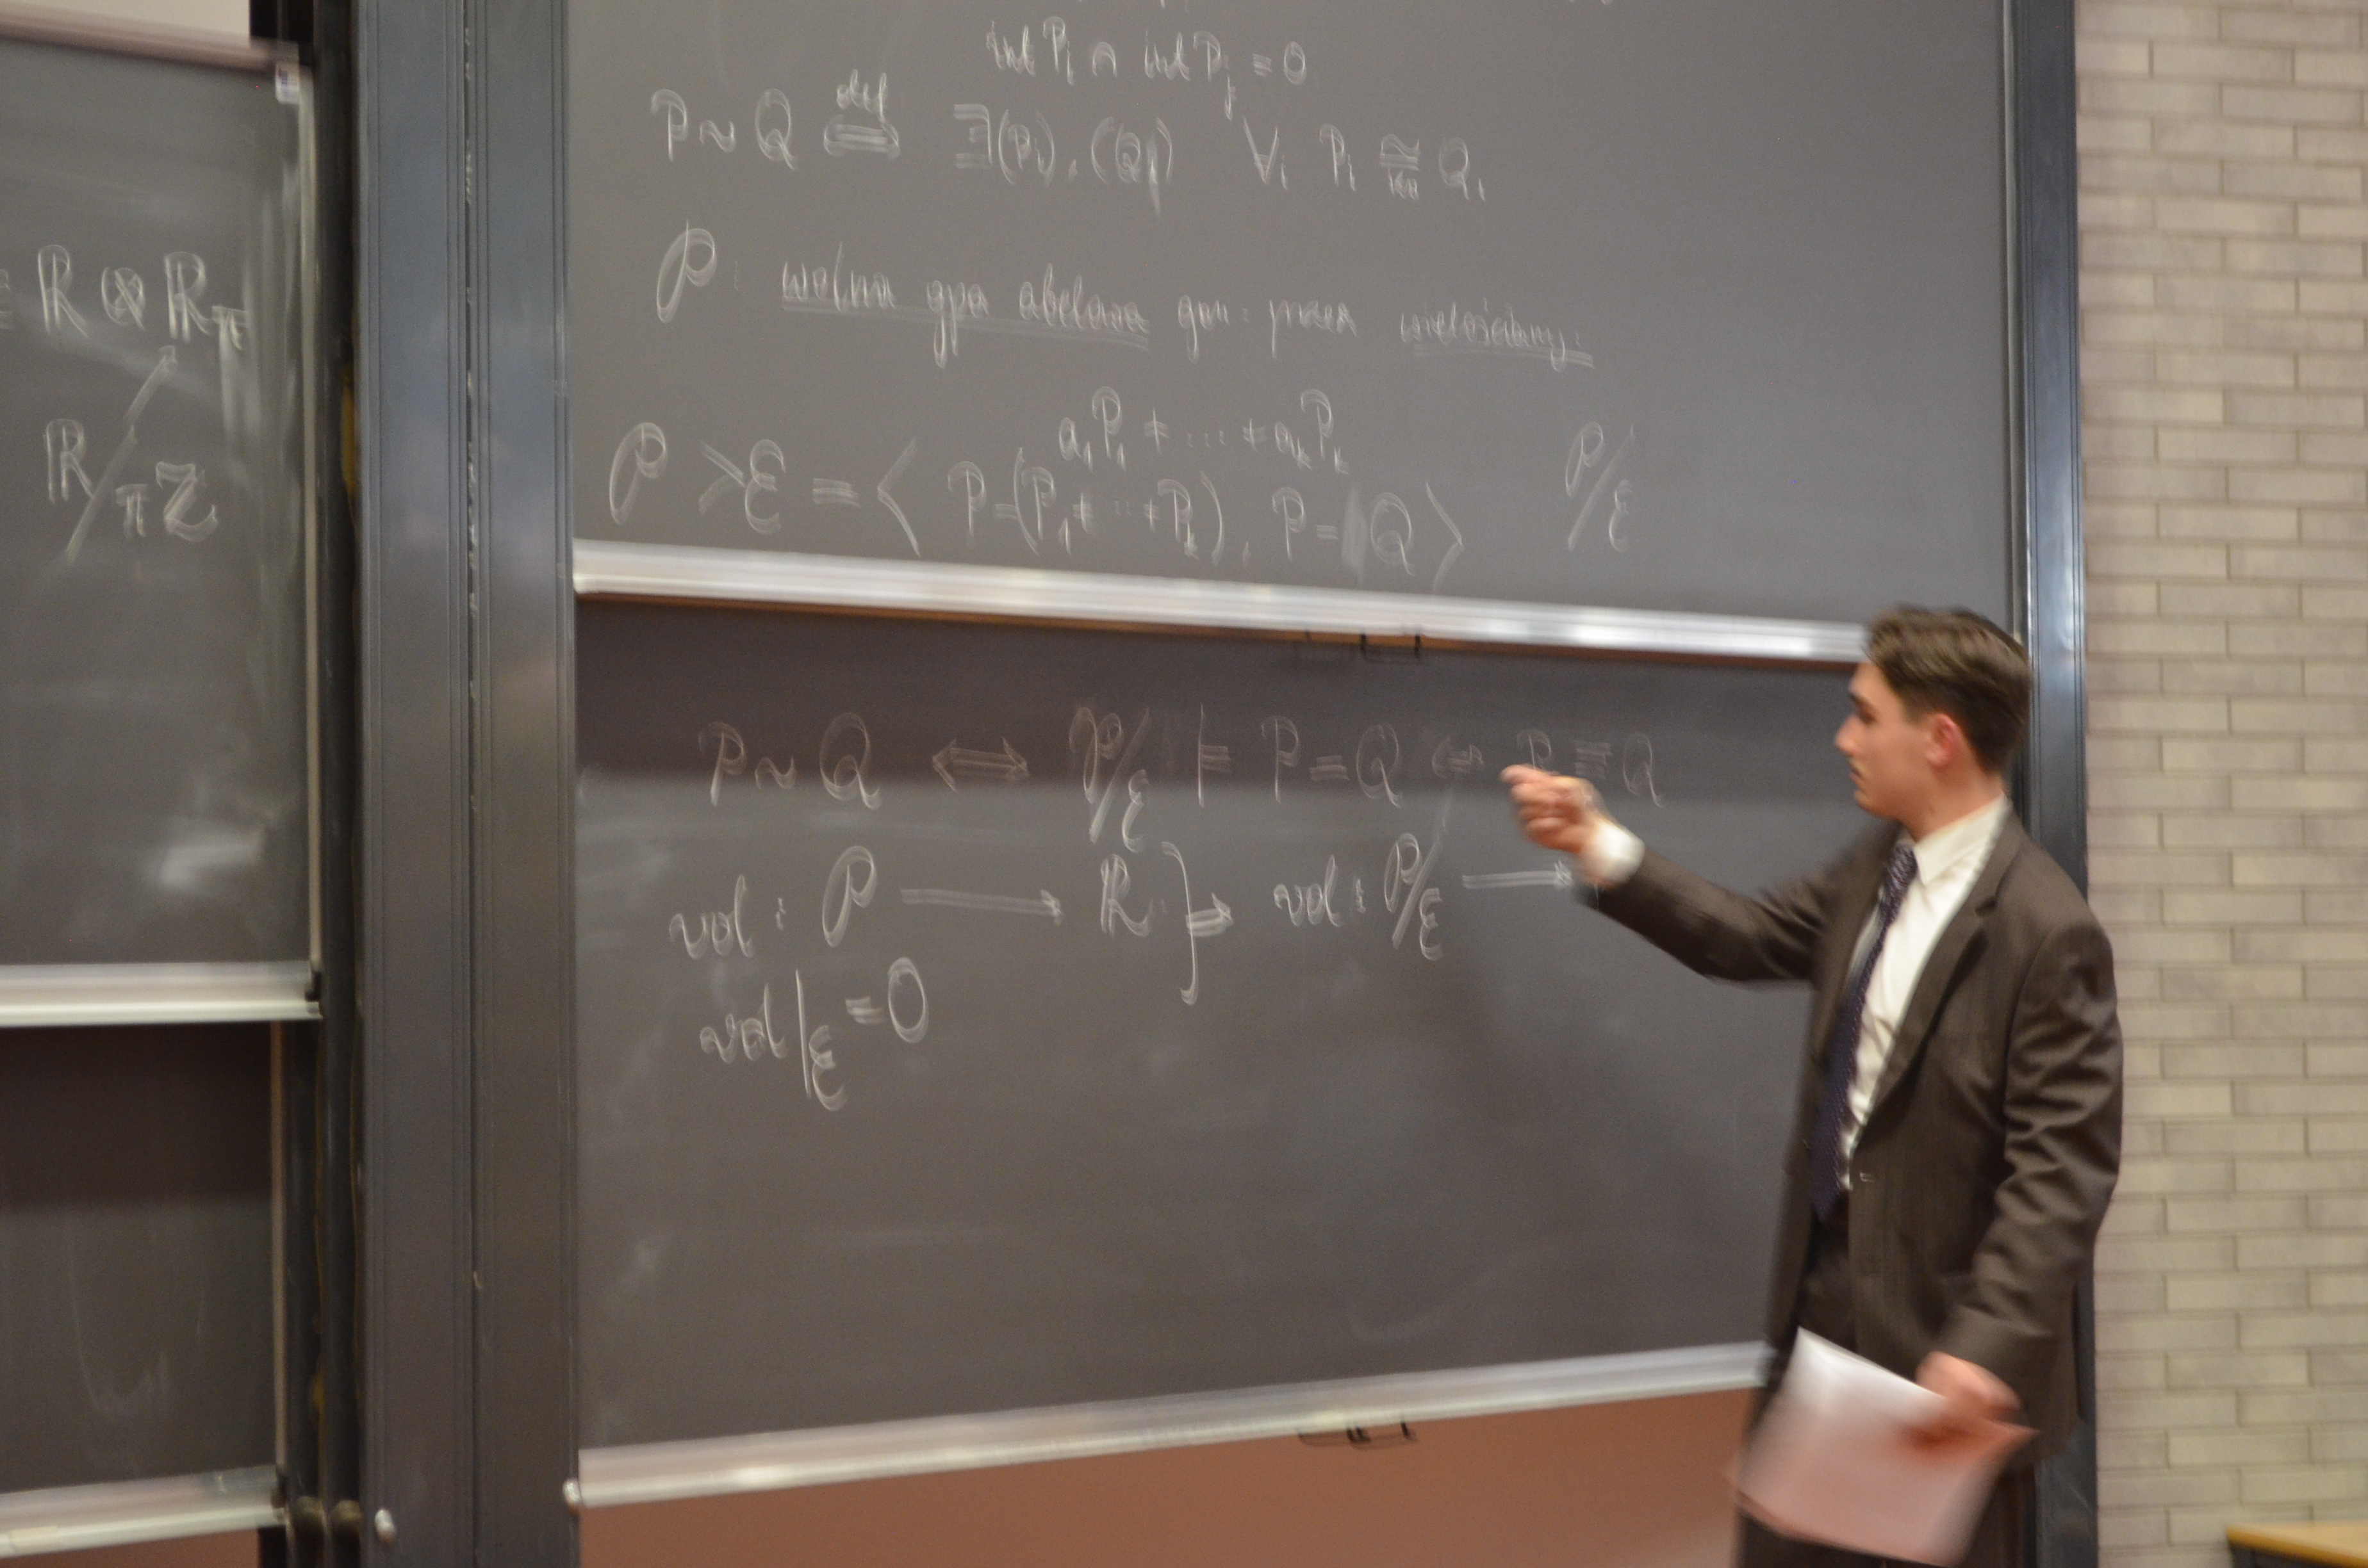 = ℝ ⊗ ℝ_π
ℝ/πℤ
int P_i ∩ int P_j = 0
P ~ Q ⟺^def ∃(P_i), (Q_i) ∀_i P_i ≅ Q_i
𝒫 : wolna gpa abelowa gen. przez wielościany.
a_1P_1 + ... + a_kP_k
𝒫 > ℰ = ⟨ P-(P_1+...+P_k), P-Q ⟩ 𝒫/ℰ
P ~ Q ⟺ 𝒫/ℰ ⊨ P = Q P ≡ Q
vol : 𝒫 ⟶ ℝ } ⇒ vol : 𝒫/ℰ ⟶
vol|_ℰ = 0